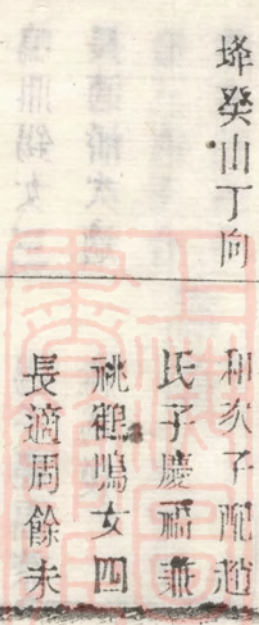 埄癸山丁向
和次子配趙
氏子慶福兼
祧鶴鳴女四
長適周餘未